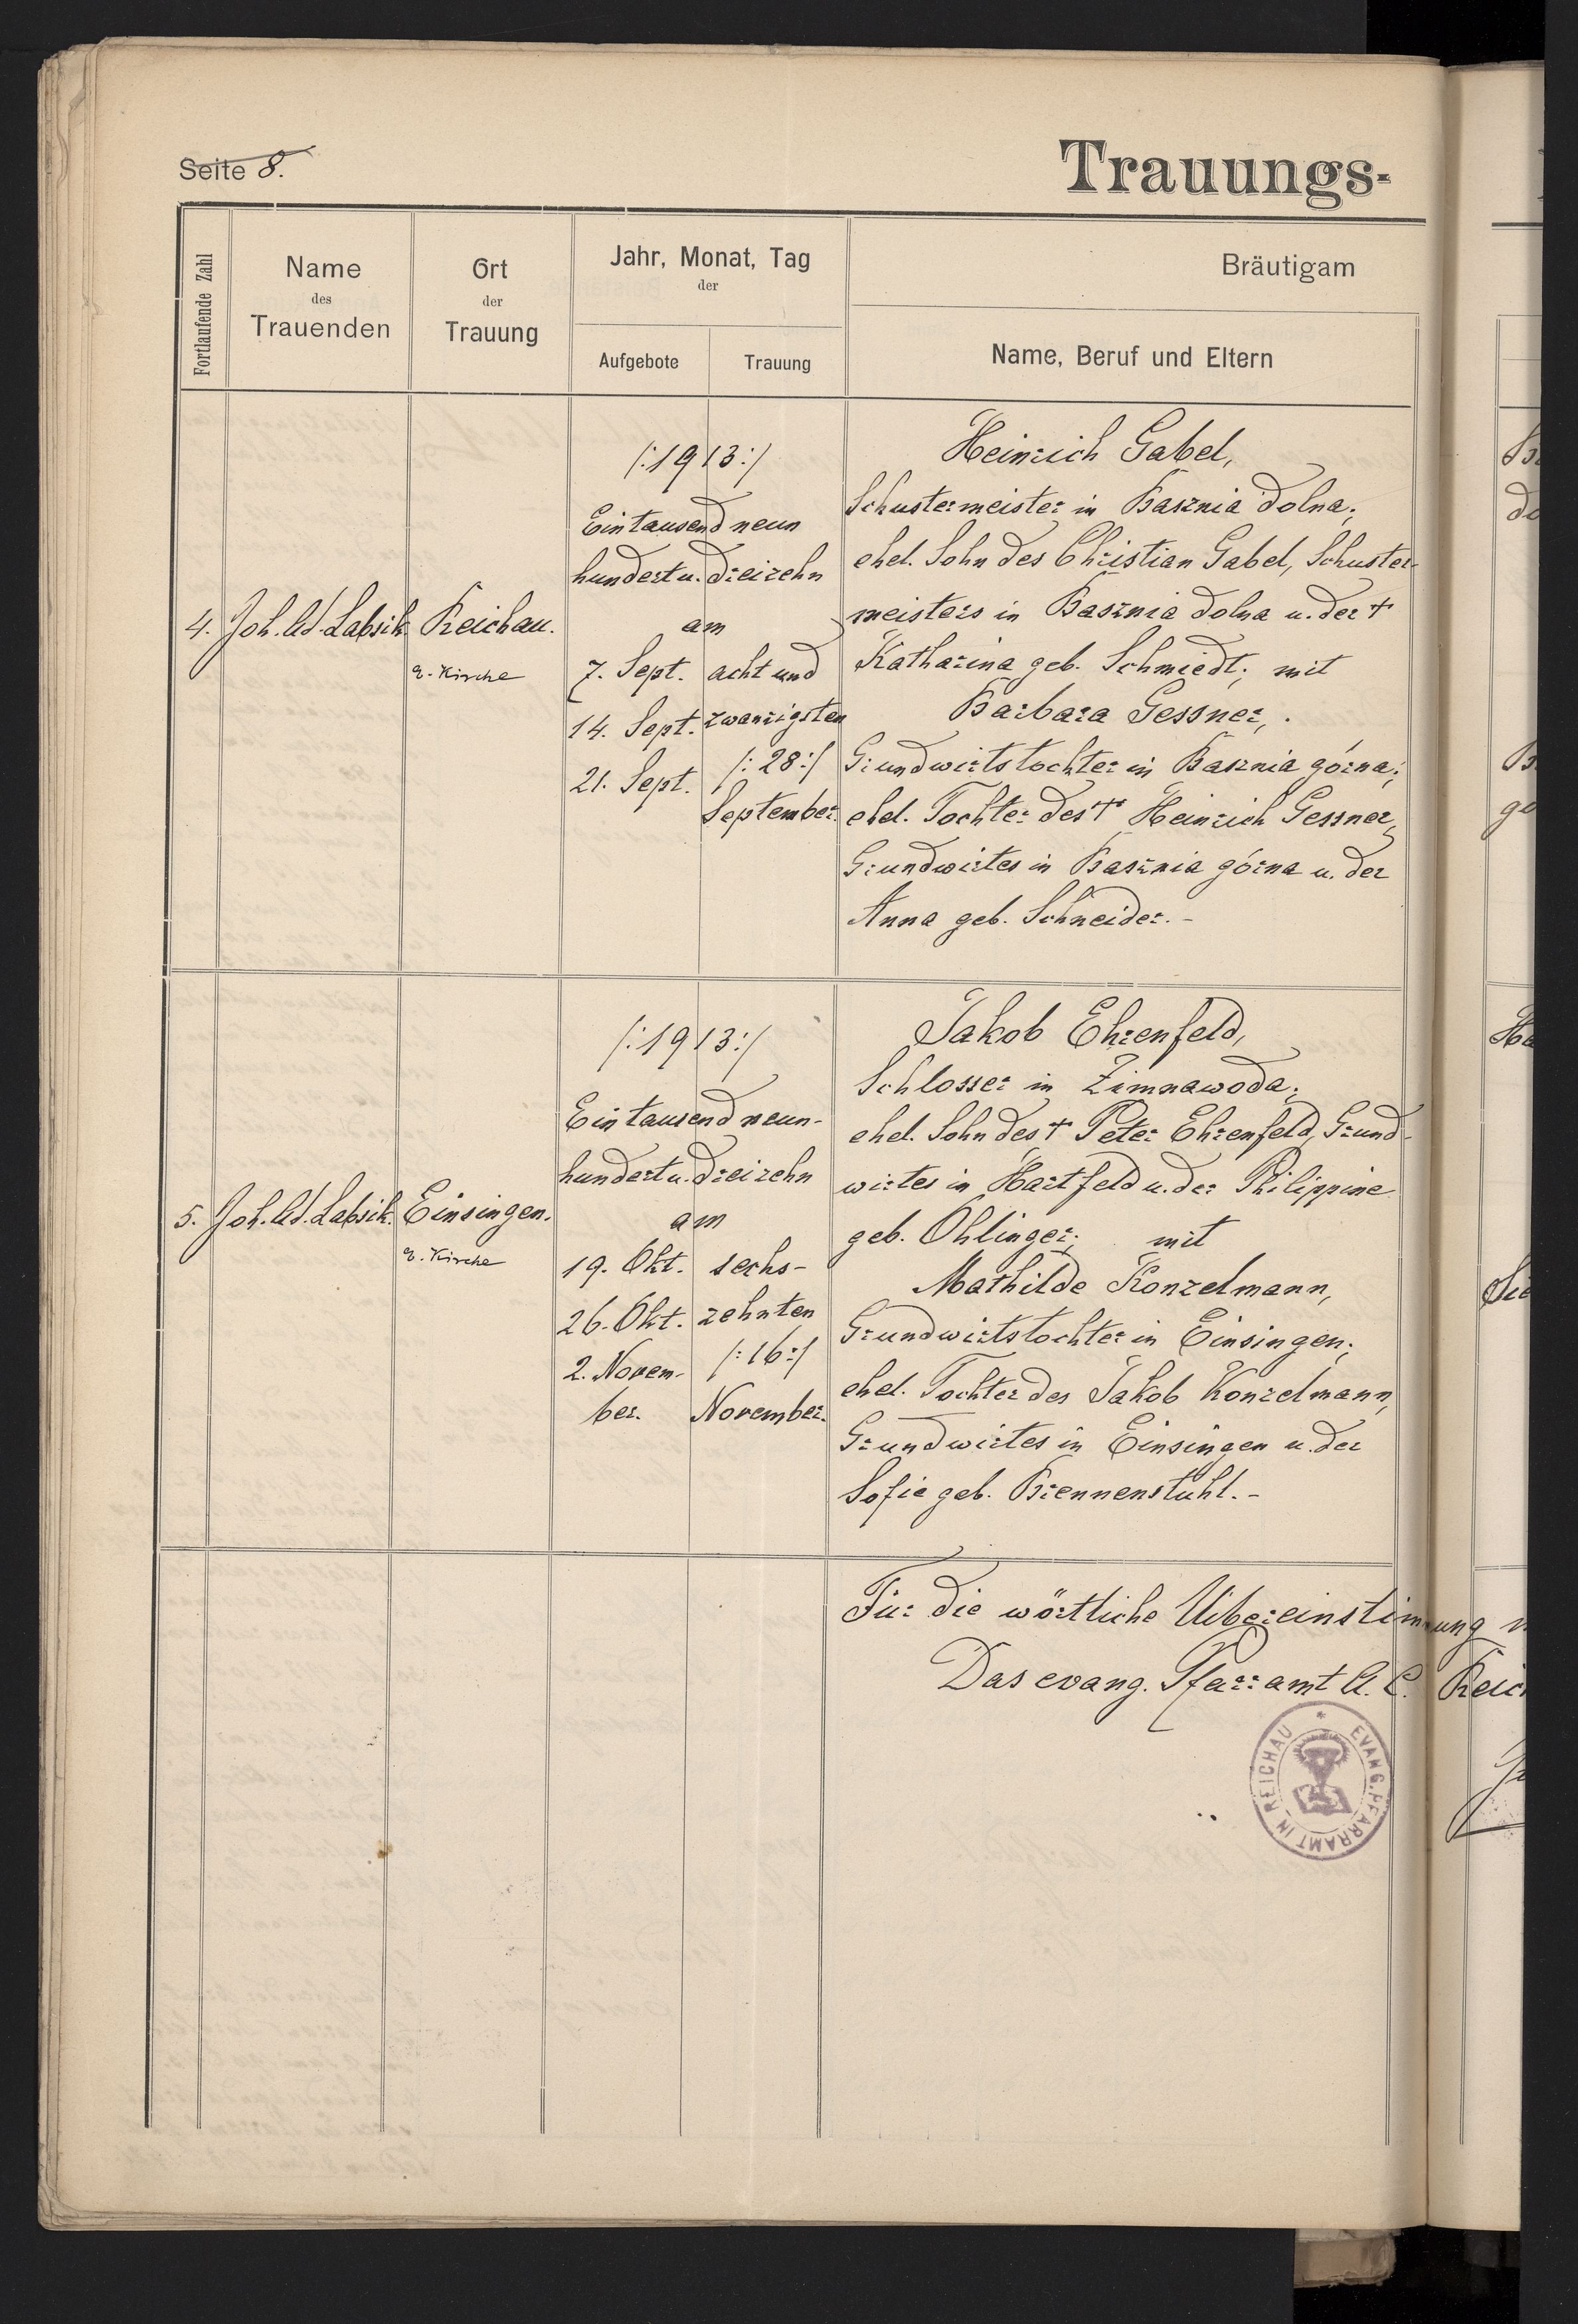 Seite 8.
Trauungs-
Fortlaufende Zahl
Name
des
Trauenden
Ort
der
Trauung
Jahr, Monat, Tag
der
Aufgebote
Trauung
Bräutigam
Name, Beruf und Eltern
4.
Joh. Ad. Labsik
Reichau.
e. Kirche
/:1913:/
Eintausend neun
hundert u. dreizehn
am
7. Sept.
14. Sept.
21. Sept.
acht und
zwanzigsten
/:28:/
September.
Heinrich Gabel,
Schustermeister in Basznia dolna;
ehel. Sohn des Christian Gabel, Schuster-
meisters in Basznia dolna u. der +
Katharina geb. Schmiedt; mit
Barbara Gessner,
Grundwirtstochter in Basznia górna;
ehel. Tochter des + Heinrich Gessner,
Grundwirtes in Basznia górna u. der
Anna geb. Schneider.-
5.
Joh. Ad. Labsik.
Einsingen.
e. Kirche
/:1913:/
Eintausend neun-
hundert u. dreizehn
am
19. Okt.
26. Okt.
2. Novem-
ber.
sechs-
zehnten
/:16:/
November.
Jakob Ehrenfeld,
Schlosser in Zimnawoda;
ehel. Sohn des + Peter Ehrenfeld, Grund-
wirtes in Hartfeld u. der Philippine
geb. Ohlinger; mit
Mathilde Konzelmann,
Grundwirtstochter in Einsingen;
ehel. Tochter des Jakob Konzelmann,
Grundwirtes in Einsingen u. der
Sofie geb. Brennenstuhl.-
Für die wörtliche Uibereinstimmung
Das evang. Pfarramt A. C. Reich
EVANG. PFARRAMT IN REICHAU